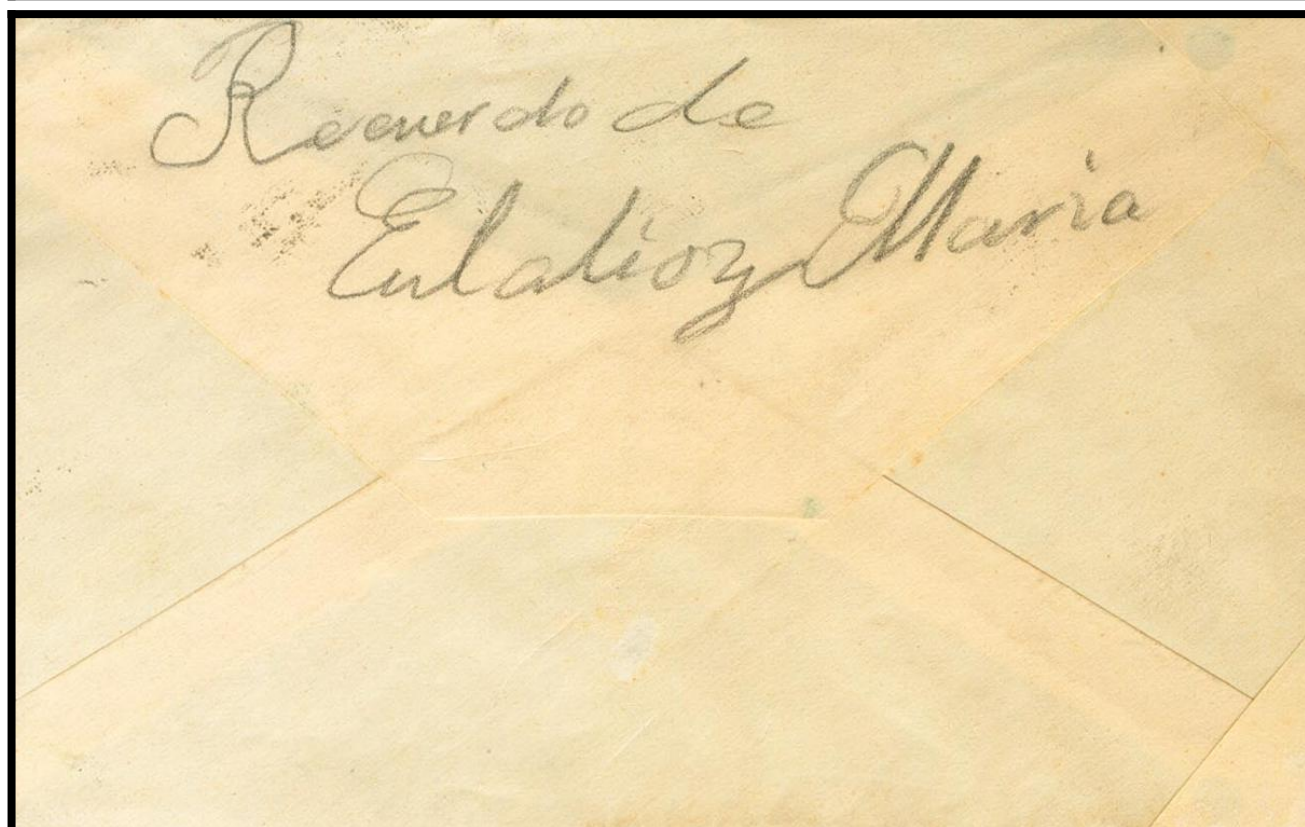 Recuerdo de
Eulalio y Maria